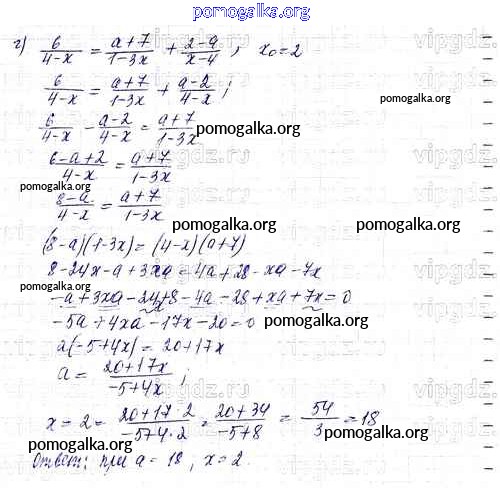 pomogalka.org
г) 6/(4-x) = (a+7)/(1-3x) + (2-a)/(x-4), x₀=2
6/(4-x) = (a+7)/(1-3x) + (a-2)/(4-x);
6/(4-x) - (a-2)/(4-x) = (a+7)/(1-3x)
pomogalka.org
(6-a+2)/(4-x) = (a+7)/(1-3x)
pomogalka.org
(8-a)/(4-x) = (a+7)/(1-3x)
pomogalka.org pomogalka.org
(8-a)(1-3x) = (4-x)(a+7)
8-24x-a+3xa = 4a+28-xa-7x
pomogalka.org
-a+3xa-24x+8-4a-28+xa+7x=0
-5a+4xa-17x-20=0 pomogalka.org
a(-5+4x) = 20+17x
pomogalka.org
a = (20+17x)/(-5+4x);
x = 2 = (20+17·2)/(-5+4·2) = (20+34)/(-5+8) = 54/3 = 18
pomogalka.org pomogalka.org
Ответ: при a = 18, x = 2.